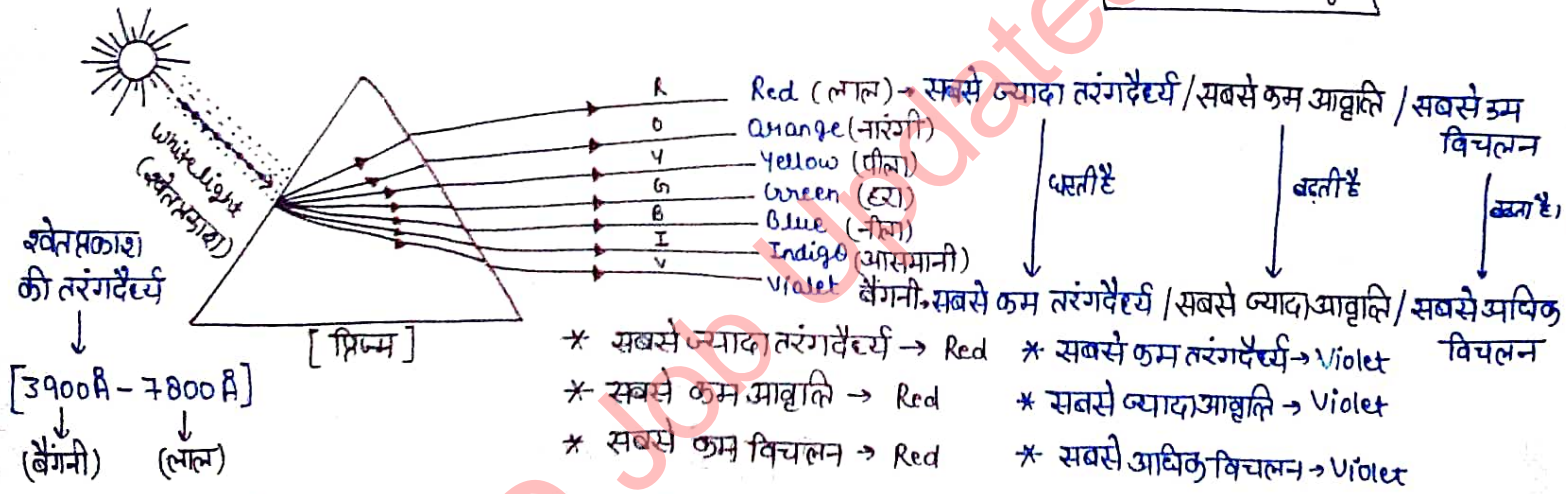 White light
(श्वेत प्रकाश)
श्वेत प्रकाश
की तरंगदैर्ध्य
[3900Å - 7800Å]
(बैंगनी) (लाल)
[प्रिज्म]
R Red (लाल) → सबसे ज्यादा तरंगदैर्ध्य / सबसे कम आवृत्ति / सबसे कम
विचलन
O Orange (नारंगी)
Y Yellow (पीला)
G Green (हरा)
B Blue (नीला)
I Indigo (आसमानी)
V Violet बैंगनी, सबसे कम तरंगदैर्ध्य / सबसे ज्यादा आवृत्ति / सबसे अधिक
विचलन
घटती है बढ़ती है बढ़ता है।
* सबसे ज्यादा तरंगदैर्ध्य → Red * सबसे कम तरंगदैर्ध्य → Violet
* सबसे कम आवृत्ति → Red * सबसे ज्यादा आवृत्ति → Violet
* सबसे कम विचलन → Red * सबसे अधिक विचलन → Violet
Job Updates